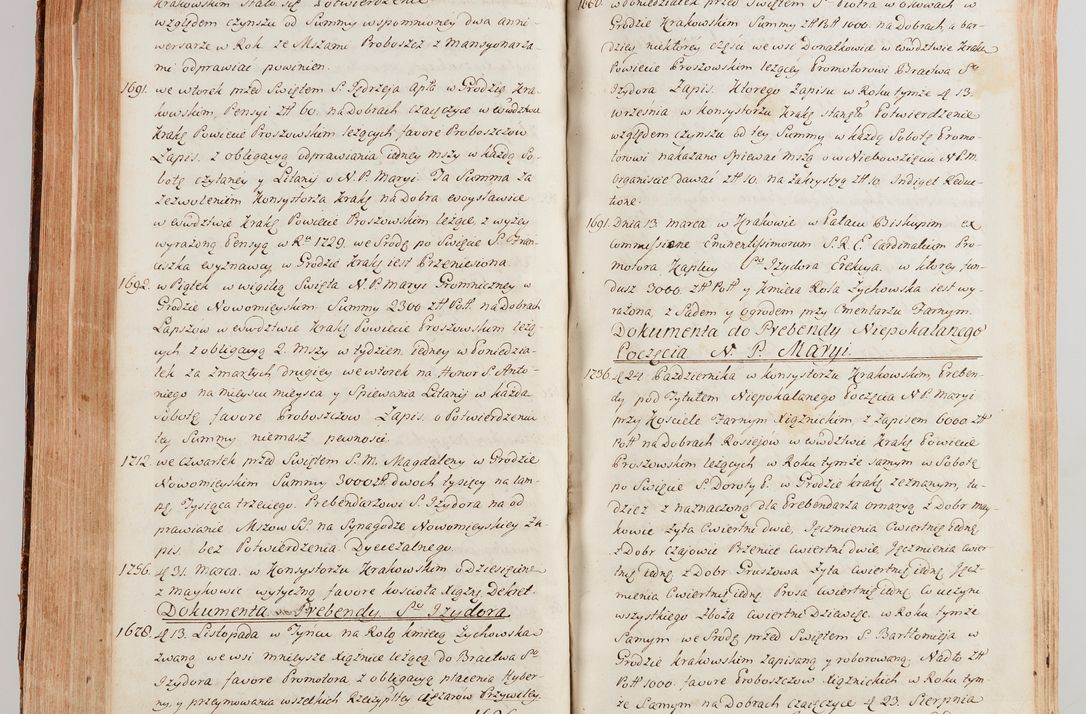 krakowskim stało się Potwierdzenie
względem czynszu od Summy wspomnioney dwa anni-
wersarze w Rok. ze Mszami Proboszcz z Mansyonarza-
mi odprawiać powinien.
1691. we wtorek przed Swiętem S. Jędrzeja Apła w Grodzie Kra-
kowskim, Pensyi złł 60. na dobrach czajęczyce w woiewdztwie
Krakę Powiecie Proszowskim leżących favore Proboszczów
Zapis. z obligacyą odprawiania iedney mszy w każdą So-
botę czytaney y Litanij o N. P. Maryi. Ta Summa za
zezwoleniem Konsystorza Krakę na Dobra woysławice
w wdztwie Krakę Powiecie Proszowskim leżące, z wyżey
wyrażoną Pensyą w Rku 1729. we Srodę po Swięcie S. Fran-
ciszka wyznawcy, w Grodzie Krakę iest Przeniesiona.
1692. w Piątek w wigilią Swięta N. P. Maryi Gromniczney w
Grodzie Nowomieyskim Summy 2300 złł Poll. na Dobrach
Łapszow w wdztwie Krakę Powiecie Proszowskim leżą-
cych z obligacyą 2. Mszy w tydzien, iedney w Poniedzia-
łek za zmarłych, drugiey we wtorek na Honor S. Anto-
niego na mieyscu mieysca y Spiewania Litanij w każdą
sobotę favore Proboszczow Zapis. o Potwierdzeniu
tey Summy niemasz pewnosci.
1712. we Czwartek przed Swiętem S. M. Magdaleny w Grodzie
Nowomieyskim Summy 3000 złł. dwoch tysięcy na tam-
Tysiąca trzeciego. Prebendarzowi S. Izydora na od
prawianie Mszow SS. na Synagodze Nowomieyskiey Za-
pis. bez Potwierdzenia Dyecezalnego.
1756. d. 31. Marca. w Konsystorzu Krakowskim o Dziesięcinę
z Maykowic wytyczną favore kościoła Xiążnę Dekret.
Dokumenta Prebendy, Sgo Izydora.
1678. d. 13. Listopada w Tyńcu na Rolą kmiecą Zychowska
zwaną we wsi mnieysze Xiążnice leżącą do Bractwa Sgo
Izydora favore Promotora z obligacyą płacenia Hyber-
ny, y przeymowania wszelkich Rzeczyplltey ciężarow Przywiley
1660. w Poniedziałek przed Swiętem S. Piotra w okowach w
Grodzie Krakowskim Summy złł Poll 1000. na Dobrach, a bar-
dziey niektorey części we wsi Donatkowice w wdztwie Krakę
Powiecie Proszowskim leżącey Promotorowi Bractwa Sgo
Izydora Zapis. Ktorego Zapisu w Roku tymże d. 13.
września w konsystorzu Krakę stanęło Potwierdzenie
względem czynszu od tey Summy, w każdą Sobotę Promo-
torowi nakazano Spiewać Mszą o w Niebowzięciu N. P. M.
Organiscie dawać złł 10. na Zakrystyą złł 10. Indiget Reduc-
tione.
1691. Dnia 13. marca w Krakowie w Pałacu Biskupim ex
Commissione Eminentissimorum S. R. E. Cardinalium Pro-
motora Kaplicy Sgo Izydora Erekcya. w ktorey fun-
dusz 3000. złł Poll y kmieca Rola Zychowska iest wy-
rażona, z Sadem y Ogrodem przy Cmentarzu Farnym.
Dokumenta do Prebendy Niepokalanego
Poczęcia N. P. Maryi.
1736. d. 24. Pazdziernika w konsystorzu Krakowskim, Preben-
dy pod Tytułem Niepokalanego Poczęcia N. P. Maryi
przy Kościele Farnym Xiążnickim, z Zapisem 6000. złł
Poll na Dobrach Rosiejow w wdztwie Krakę Powiecie
Proszowskim leżących w Roku tymże samym w Sobotę
po Swięcie S. Doroty P. w Grodzie krakę zeznanym, tu-
dziez z naznaczoną dla Prebendarza ornaryą z Dobr May-
kowic Zyta Cwiertni dwie, Jęczmienia Cwiertnię iedną,
z Dobr Czajowic Przenice Cwiertni dwie, Jęczmienia Cwier-
tnię iedną, z Dobr Gruszowa Zyta Cwiertnię iedną, Jęcz-
mienia Cwiertnię iedną, Prosa Cwiertnię iedną, co uczyni
wszystkiego Zboża Cwiertni Dziewięć. w Roku tymże
Samym we Srodę przed Swiętem S. Bartłomieja w
Grodzie krakowskim zapisaną y roborowaną. Nadto złł
Poll 1000. favore Proboszczow Xiążnickich w Roku tym
że Samym na Dobrach czajęczyce d. 23. Sierpnia